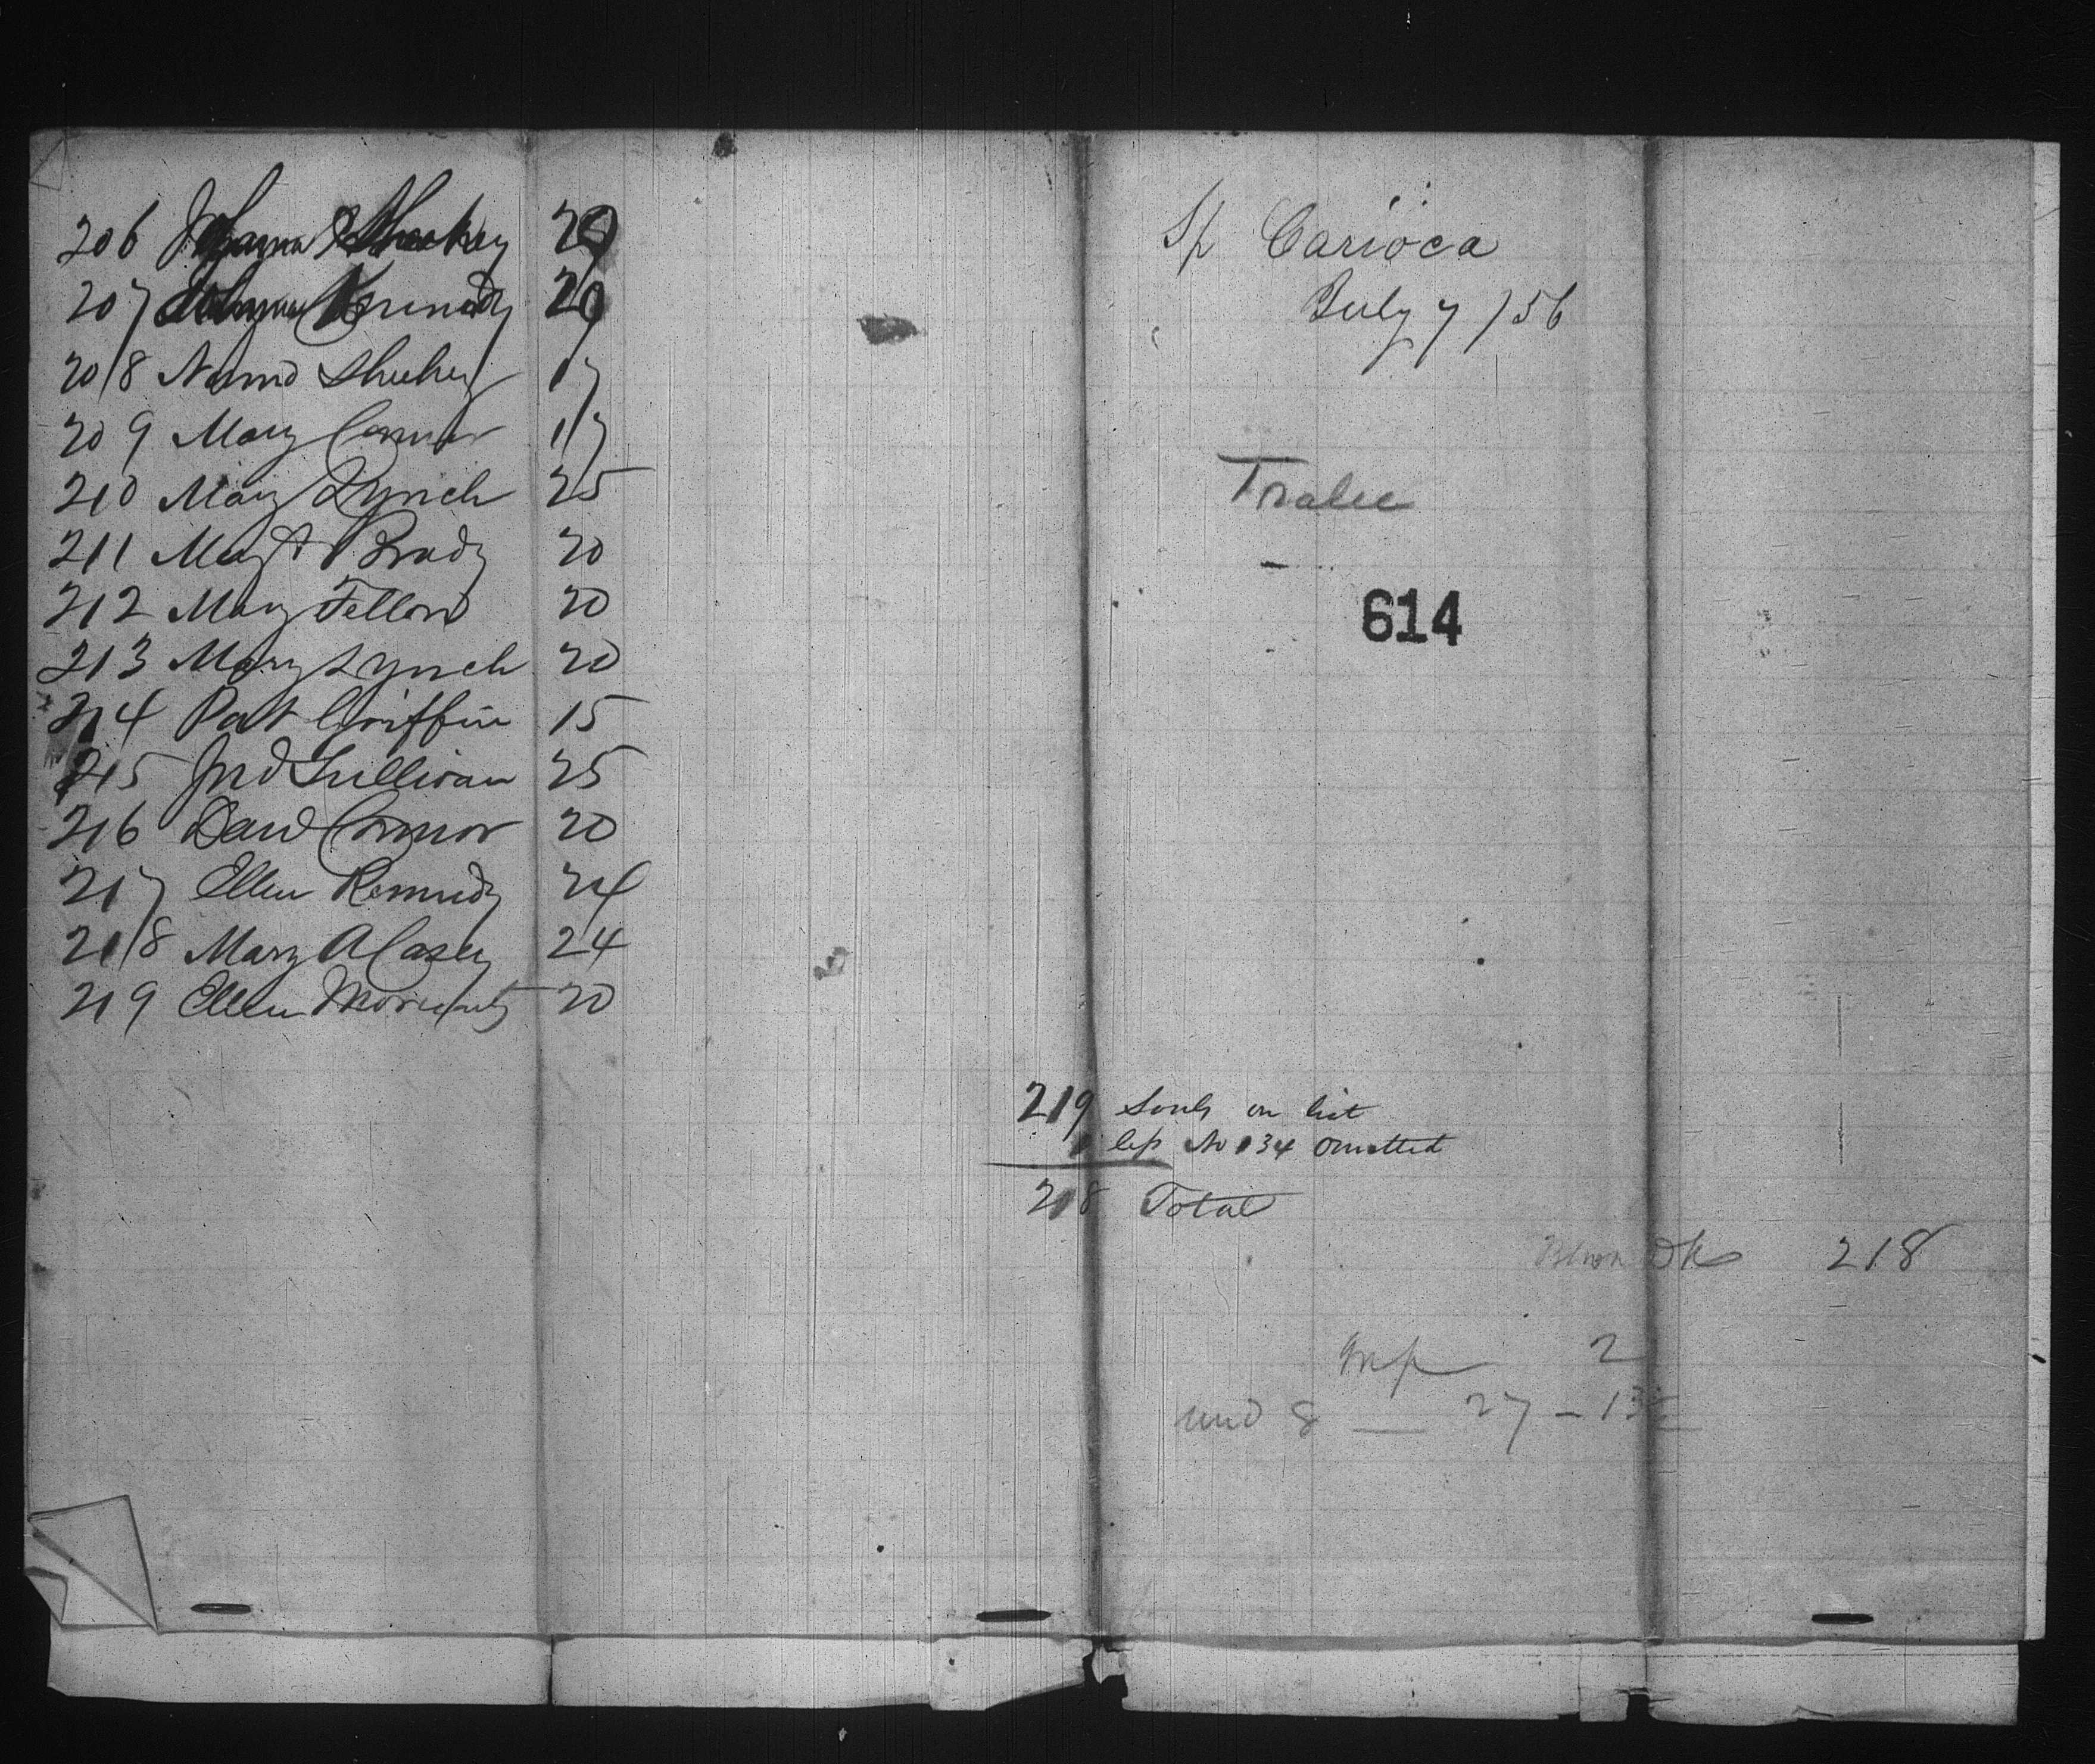 206 Johanna Sheehey 29
207 Kennedy 20
208 Nano Sheehy 17
209 Mary Connor 17
210 Mary Lynch 25
211 Magt Brady 20
212 Mary Fellon 20
213 Mary Lynch 20
214 Pat Griffin 15
215 Jno Sullivan 25
216 Davd Connor 20
217 Ellen Kennedy 24
218 Mary A Casey 24
219 Ellen Moriarty 20
Sp Carioca
July 7/56
Tralee
614
219 Souls on list
1 less No 134 omitted
218 Total
Ok 218
Inf 2
und 8 — 27 —